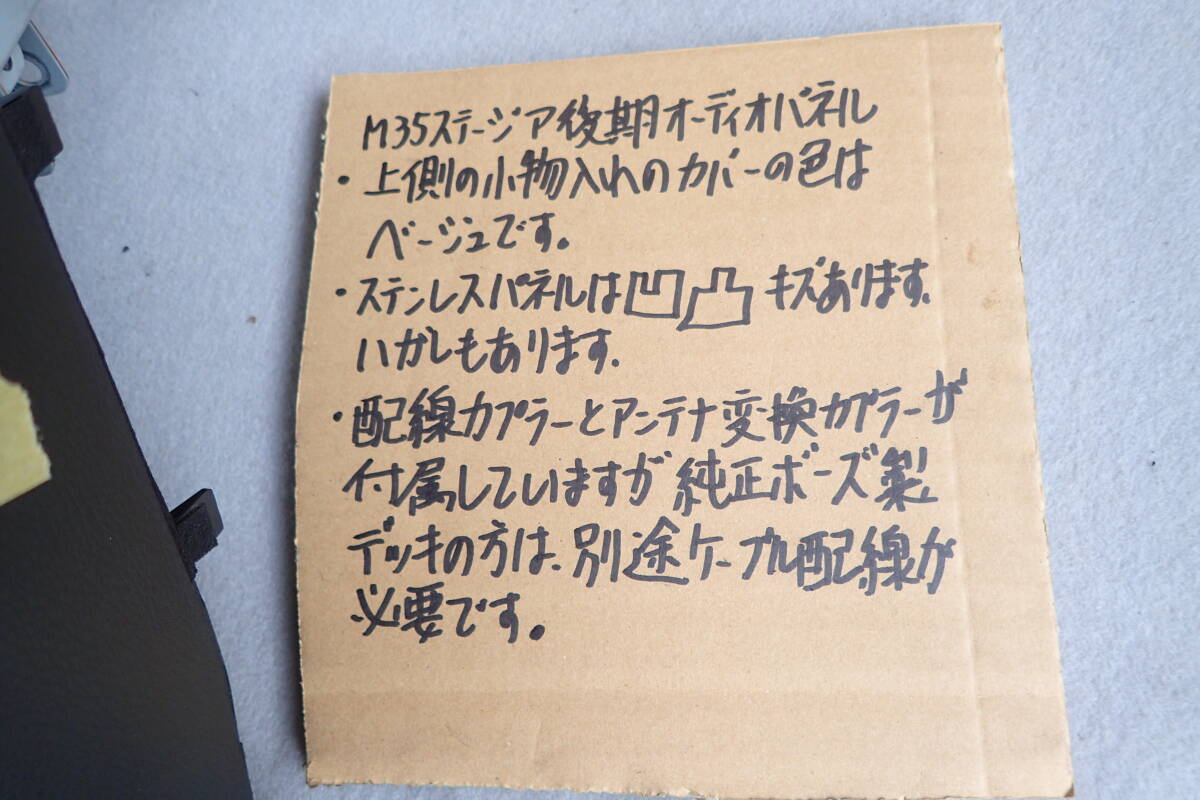 M35ステージア後期オーディオパネル
・上側の小物入れのカバーの色は
ベージュです。
・ステンレスパネルは凹凸キズあります。
ハガレもあります。
・配線カプラーとアンテナ変換カプラーが
付属していますが純正ボーズ製
デッキの方は、別途ケーブル配線が
必要です。